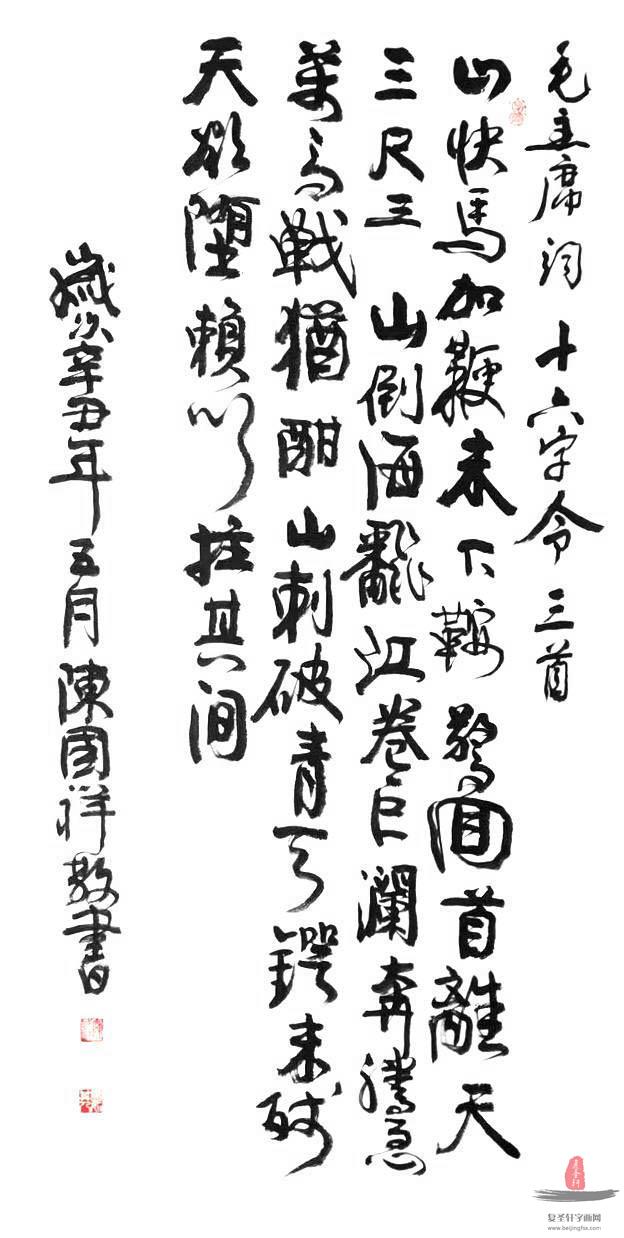 毛主席词十六字令三首
山快馬加鞭未下鞍驚回首離天
三尺三 山倒海飜江卷巨瀾奔騰急
萬馬戰猶酣 山刺破青天锷未残
天欲墮賴以拄其间
歲次辛丑年五月陳國祥敬書
复圣轩字画网
www.beijingfsx.com